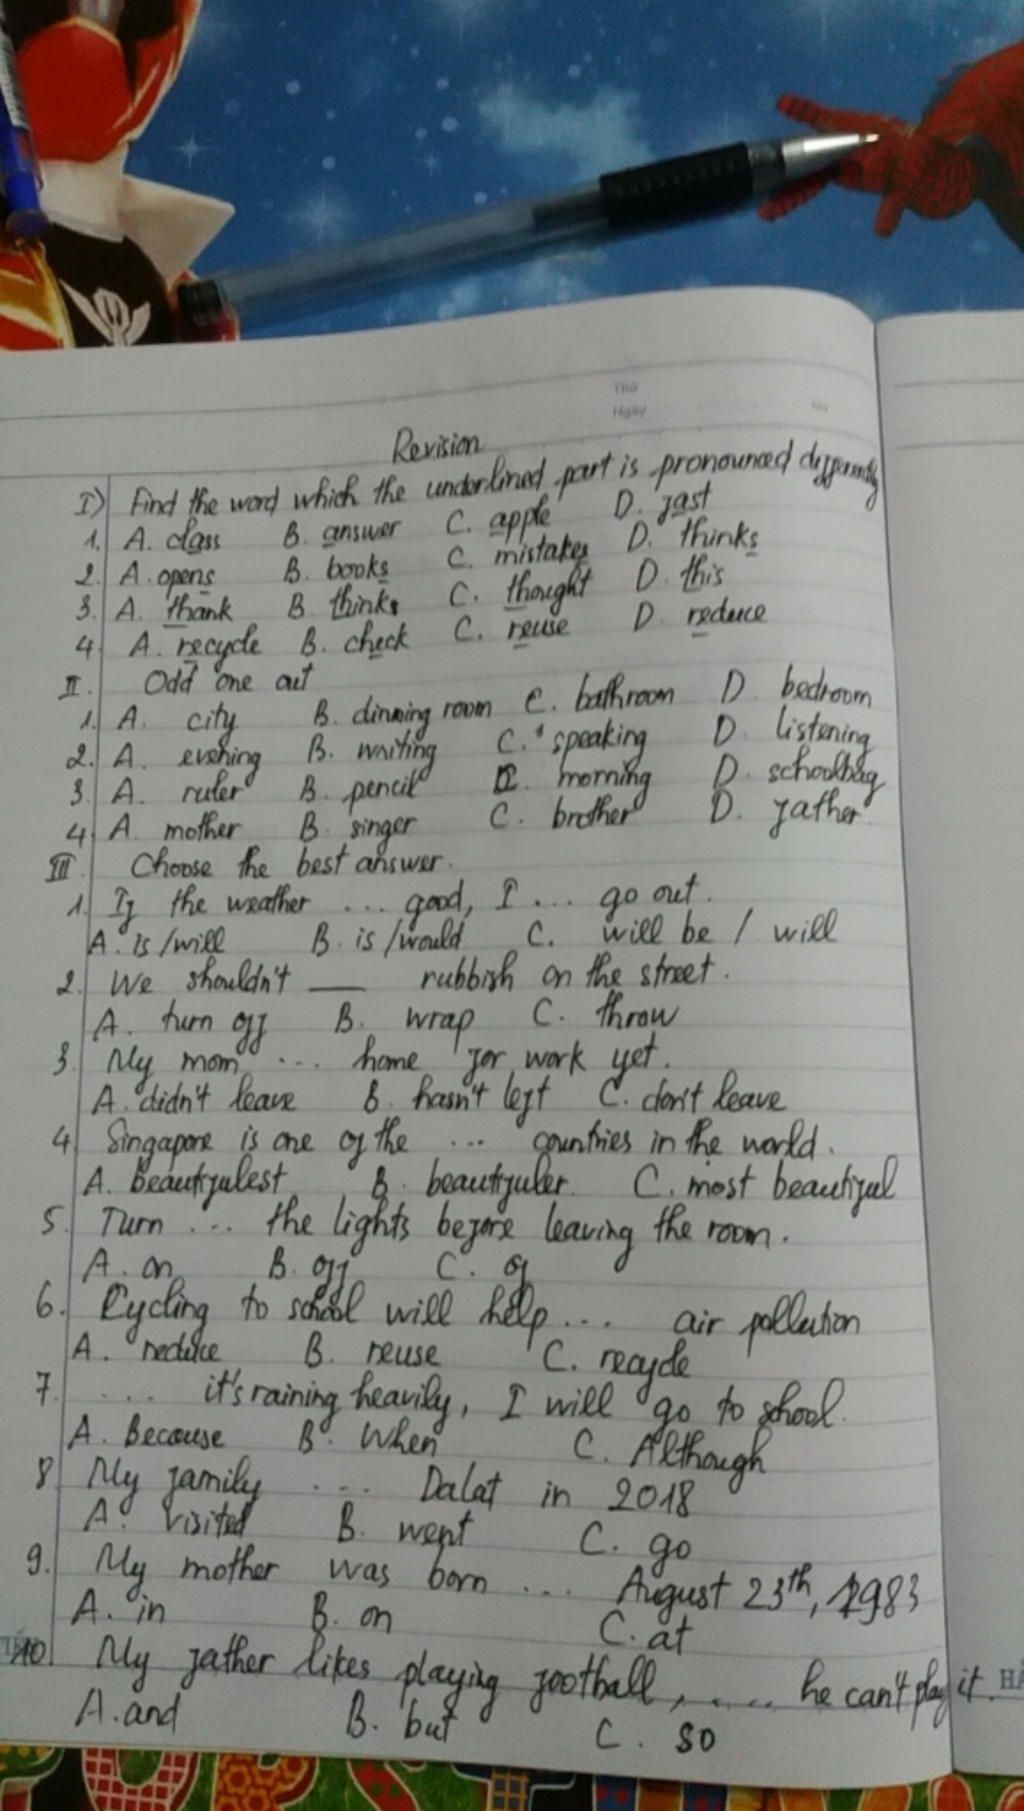 Thứ
Ngày
No
Revision
I) Find the word which the underlined part is pronounced differently
1. A. class B. answer C. apple D. fast
2. A. opens B. books C. mistakes D. thinks
3. A. thank B. thinks C. thought D. this
4 A. recycle B. check C. reuse D. reduce
II. Odd one out
1. A. city B. dinning room C. bathroom D bedroom
2. A. evening B. writing C. speaking D. listening
3 A. ruler B. pencil C. morning D. schoolbag
4 A. mother B. singer C. brother D. father
III Choose the best answer.
1. If the weather ... good, I ... go out.
A. is/will B. is/would C. will be / will
2. We shouldn't ___ rubbish on the street.
A. turn off B. wrap C. throw
3. My mom ... home for work yet.
A. didn't leave B. hasn't left C. don't leave
4 Singapore is one of the ... countries in the world.
A. beautifulest B. beautifuler C. most beautiful
5. Turn ... the lights before leaving the room.
A. on B. off C. of
6. Cycling to school will help ... air pollution
A. reduce B. reuse C. recycle
7. .... it's raining heavily, I will go to school.
A. Because B. When C. Although
8 My family .... Dalat in 2018
A. visited B. went C. go
9. My mother was born ... August 23th, 1983
A. in B. on C. at
10. My father likes playing football, ..... he can't play it.
A. and B. but C. so